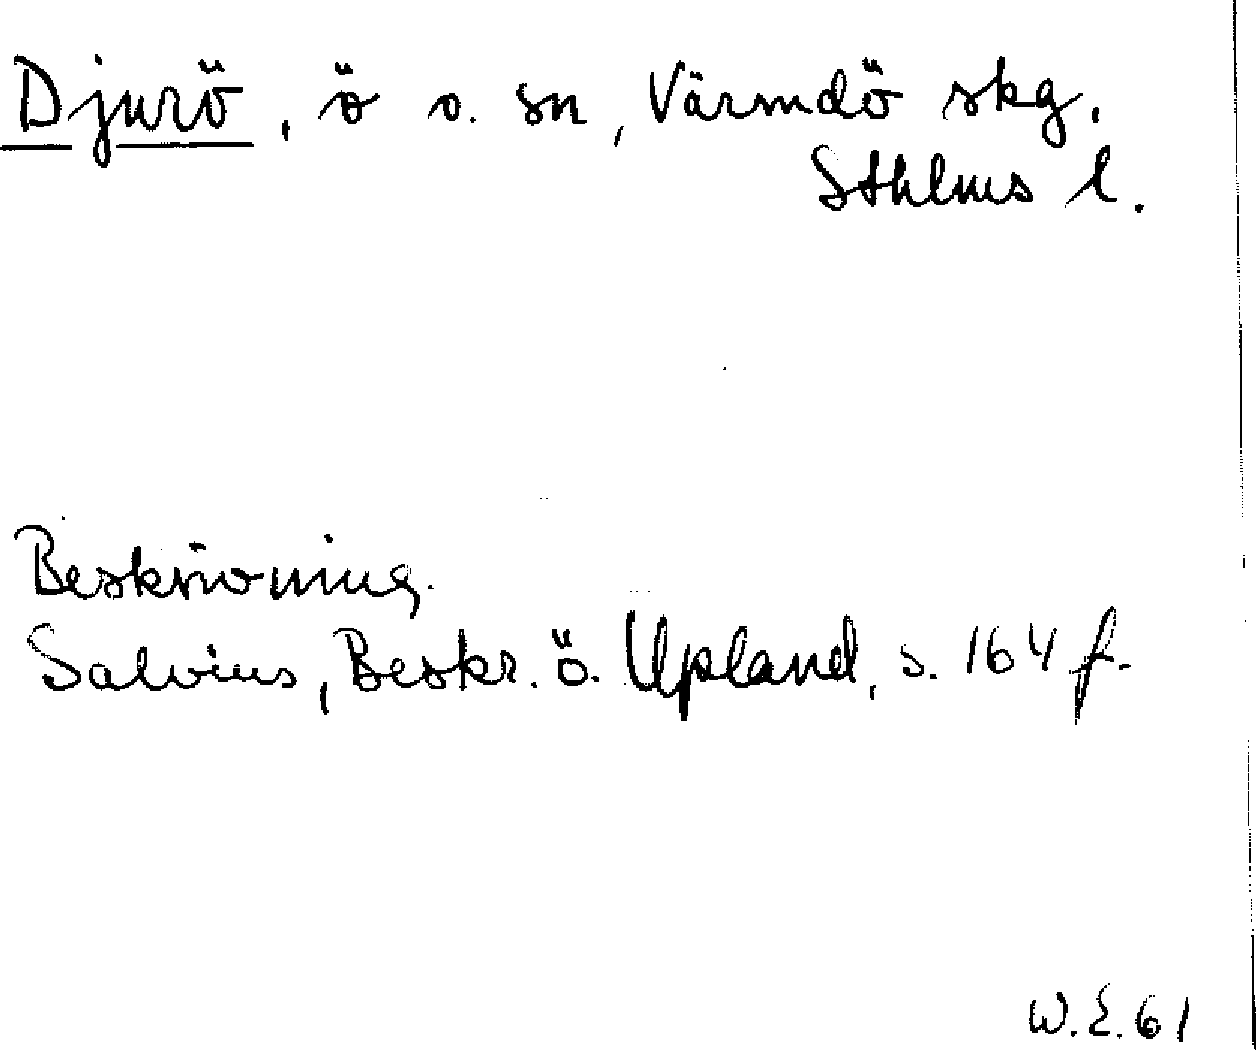 Djurö, ö o. sn, Värmdö skg,
Sthlms l.
Beskrivning.
Salvius, Beskr. ö. Upland, s. 164 f.
W.E. 61